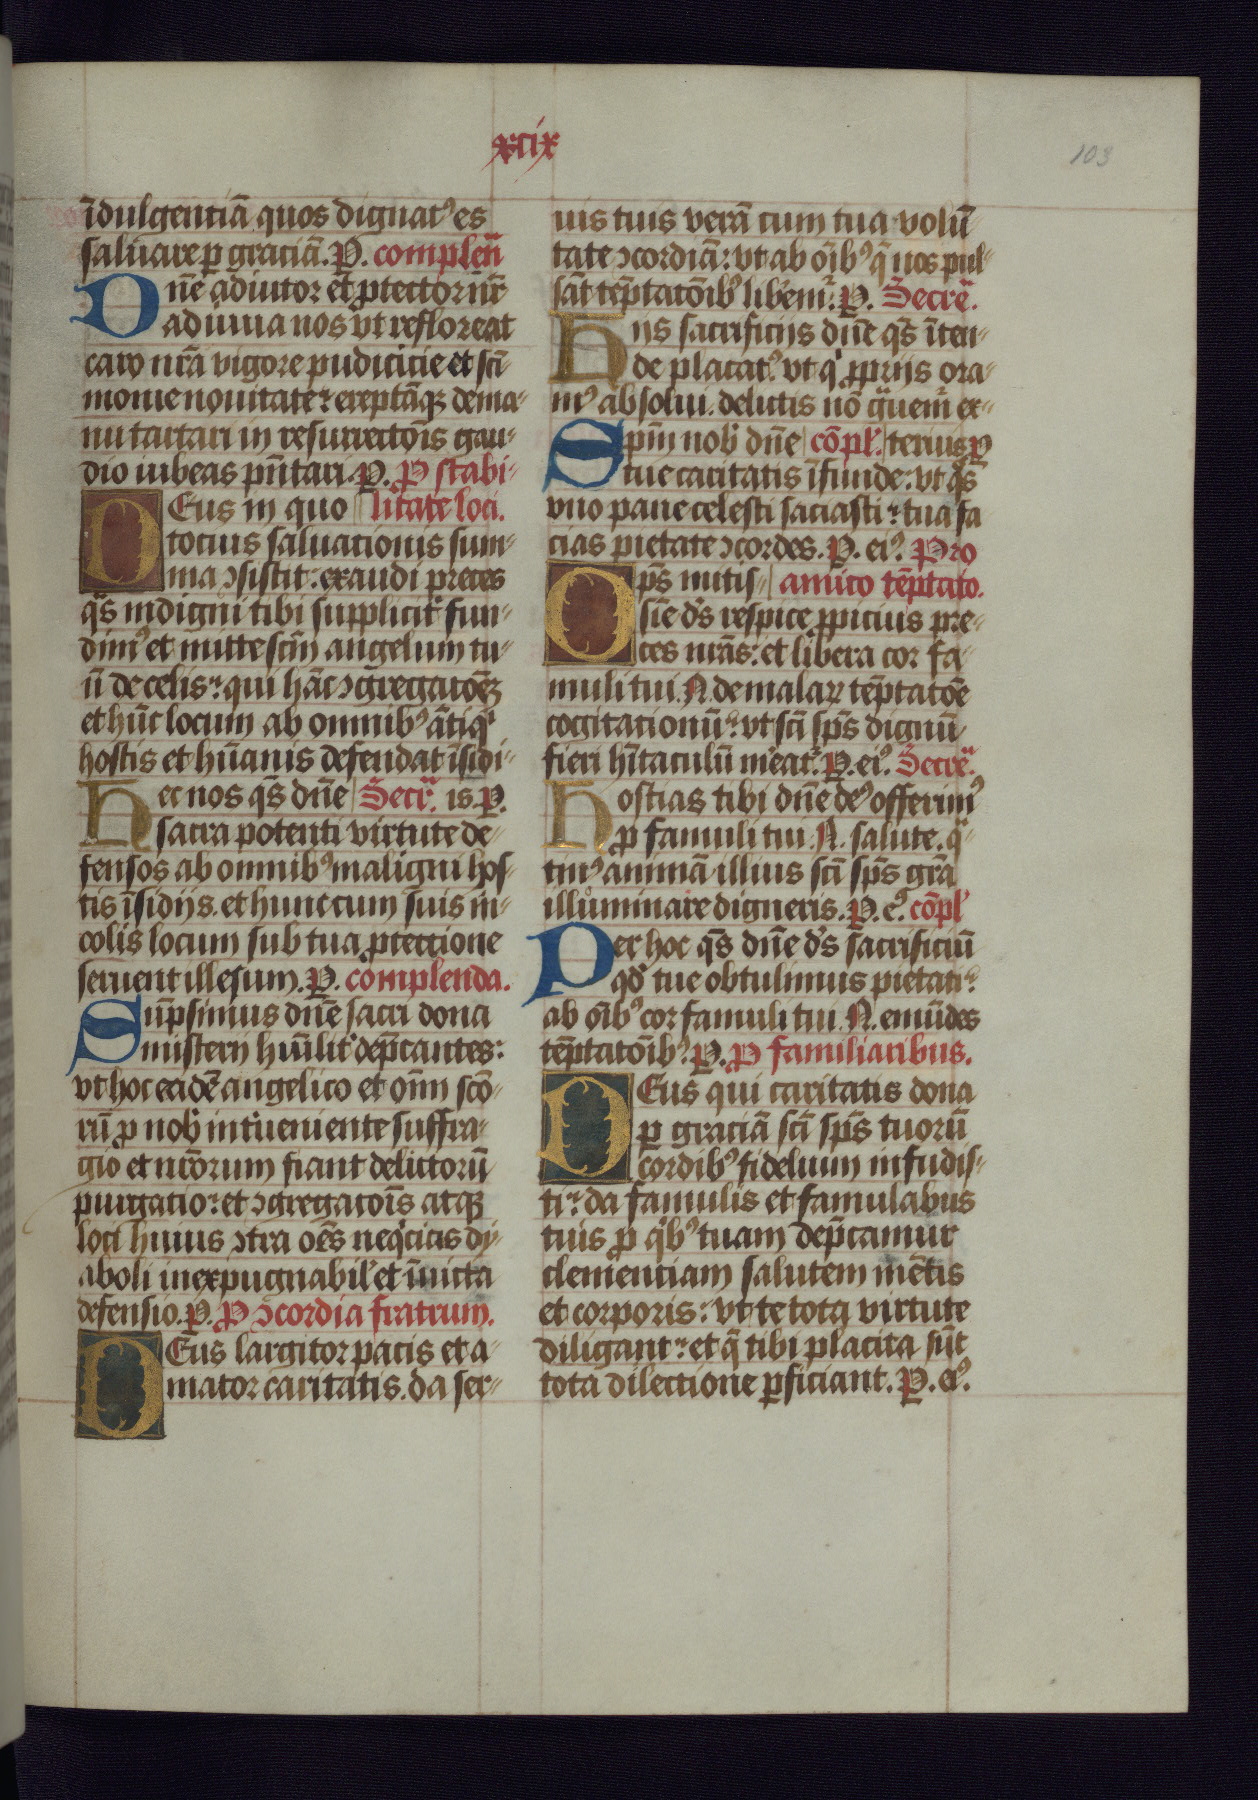 xcix
103
īdulgentiā quos dignatꝰ es
saluare ꝑ graciā. P. complen̄
Dn̄e adiutor et ꝓtector nr̄e
adiuua nos vt refloreat
caro nrā vigore pudicicie et scī
monie nouitate: ereptāqꝫ de ma-
nu tartari in resurrectōis gau-
dio iubeas pn̄tari. P. P stabi-
Deus in quo litate loci.
tocius saluacionis sum-
ma ɔsistit: exaudi preces
qs̄ indigni tibi supplicit᷒ fun-
dimꝰ et mitte scm̄ angelum tu-
ū de celis: qui hāc ɔgregatōeꝫ
et hūc locum ab omnibꝰ ātiqͥ
hostis et hūanis defendat īsidi-
Hec nos qs̄ dn̄e Secrͣ. is. P.
sacra potenti virtute de-
fensos ab omnibꝰ maligni hos-
tis īsidijs. et hunc cum suis in-
colis locum sub tua ꝓtectione
seruent illesum. P. complenda.
Sūpsimus dn̄e sacri dona
misterij hūilit᷒ dep̄cantes:
vt hoc eadē angelico et om̄i scō-
rū ꝓ nob᷒ int᷒ueniente suffra-
gio et nr̄orum fiant delictorū
purgatio: et ɔgregatōis atqꝫ
loci huius ɔtra oēs neqͥcias dy-
aboli inexpugnabil᷒ et īuicta
defensio. P. P ɔcordia fratrum.
Deus largitor pacis et a-
mator caritatis. da ser-
uis tuis verā cum tua volū-
tate ɔcordiā: vt ab oīb᷒ꝰ q̄ nos pul-
sāt tēptatōibꝰ libem᷒. P. Secrēͣ.
Hijs sacrificijs dn̄e qs̄ īten-
de placatꝰ. vt qͥ ꝓprijs ora-
mꝰ absolui. delictis nō gͣuem᷒ ex-
Spm̄ nob᷒ dn̄e cōpl᷒. teriusP
tue caritatis īfunde: vt q̄s
vno pane celesti saciasti: tua fa
cias pietate ɔcordes. P. eiꝰ. Pro
Op̄s mitis- amico tēptato.
sīe ds̄ respice ꝓpicius pre-
ces nrās: et libera cor fa-
muli tui N. de malaꝝ tēptatōe
cogitacionū: vt scī sp̄s dignū
fieri hītaculū m᷒eat᷒. P. eiꝰ. Secrēͣ.
Hostias tibi dn̄e deꝰ offerimꝰ
ꝓ famuli tui N. salute. qͣ-
tinꝰ animā illius scī sp̄s grā
illuminare digneris. P. eꝰ. cōpl᷒
Per hoc qs̄ dn̄e ds̄ sacrificiū
qd᷒ tue obtulimus pietati:
ab oīb᷒ꝰ cor famuli tui N. emūdes
tēptatōibꝰ. P. P familiaribus.
Deus qui caritatis dona
ꝑ graciā scī sp̄s tuorū
cordibꝰ fidelium infudis-
ti: da famulis et famulabus
tuis ꝓ qͥbꝰ tuam dep̄camur
clemenciam salutem mētis
et corporis: vt te tota virtute
diligant: et q̄ tibi placita sūt
tota dilectione ꝑficiant. P. eiꝰ.